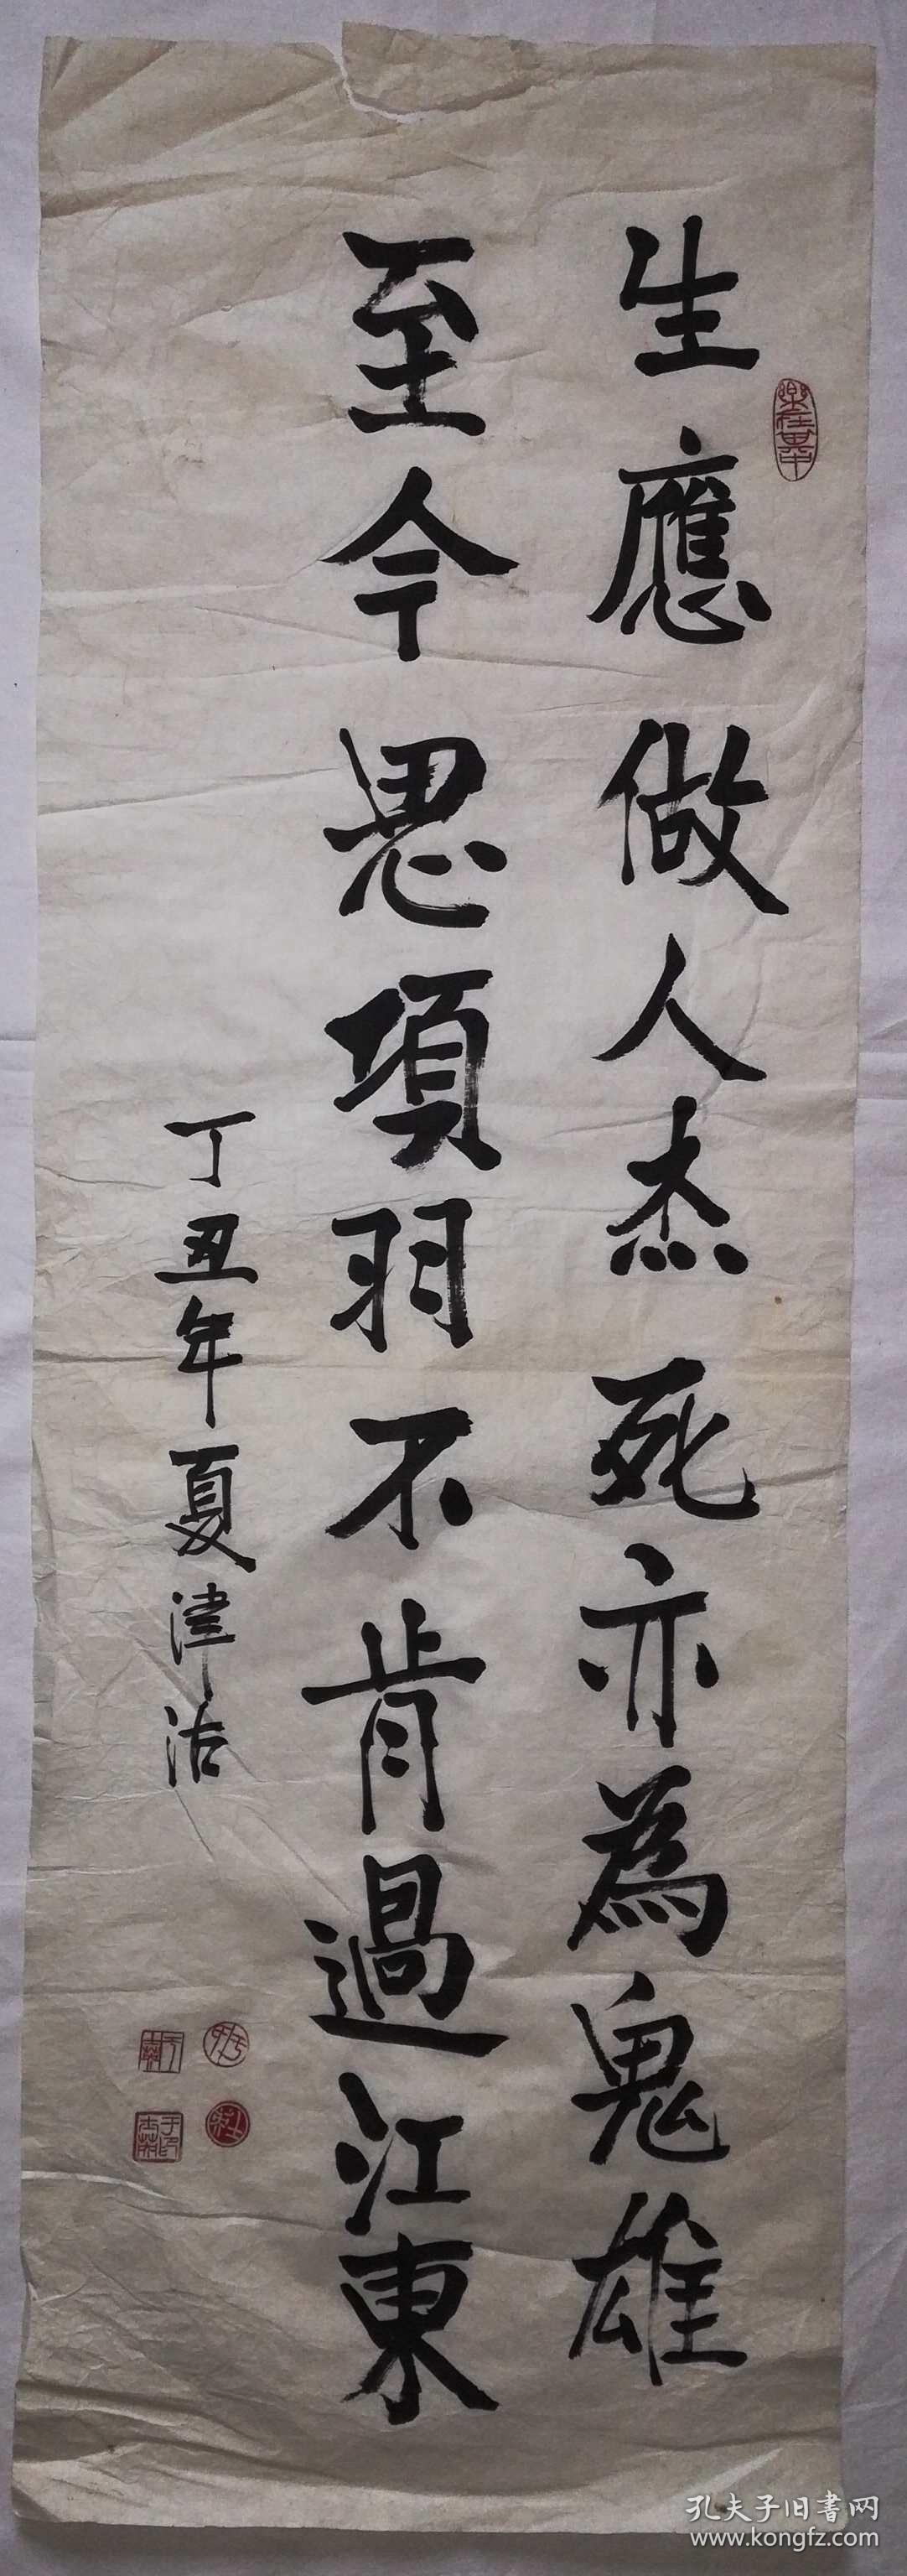 生應做人杰死亦為鬼雄
至今思項羽不肯過江東
丁丑年夏津沽
樂在其中
孔夫子旧書网
www.kongfz.com